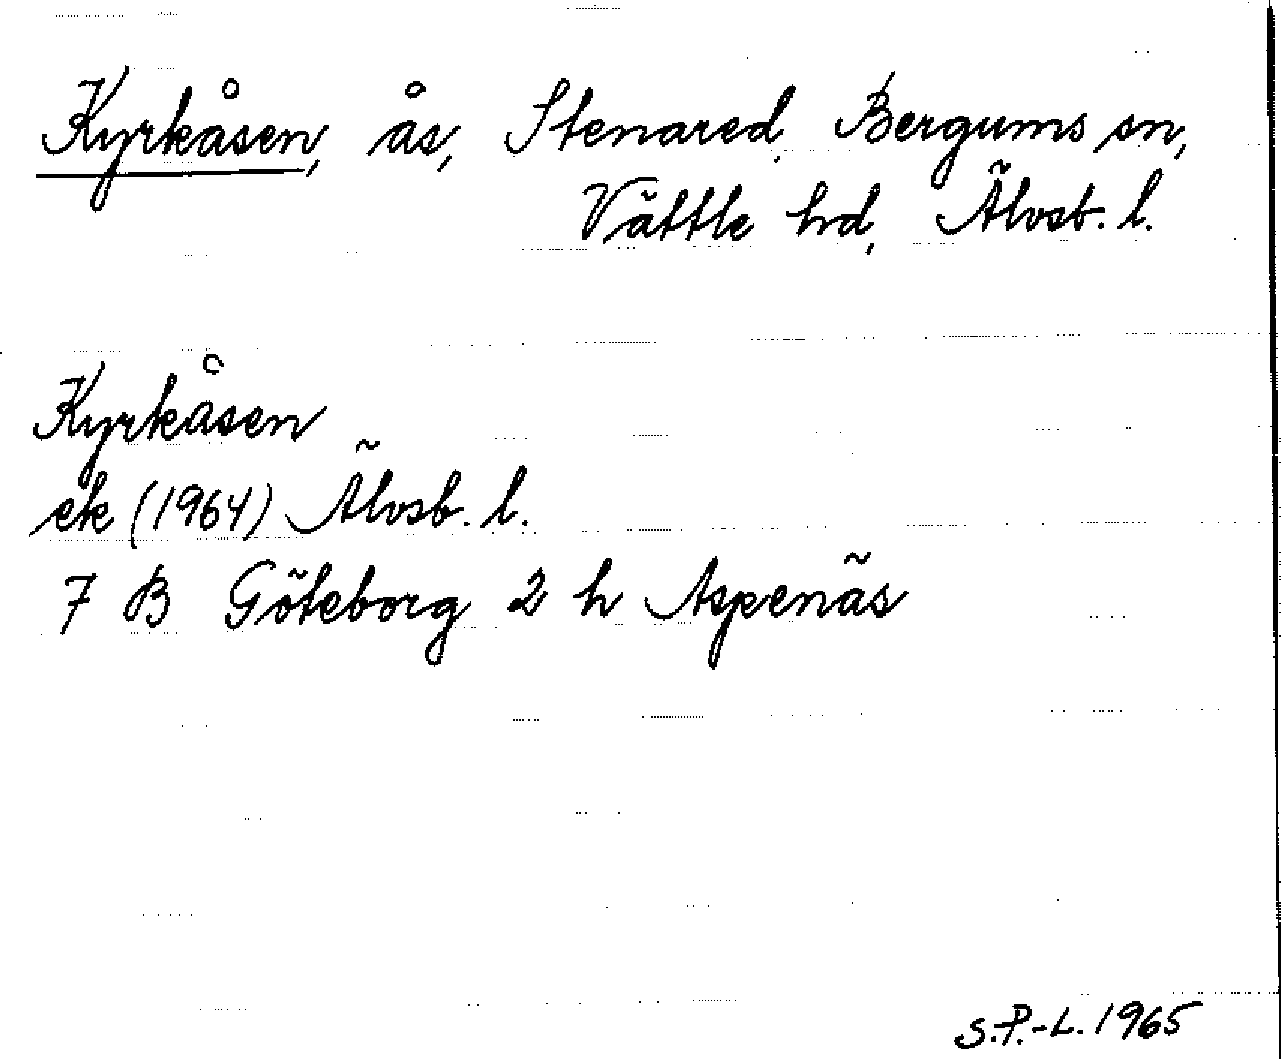 Kyrkåsen, ås, Stenared, Bergums sn,
Vättle hd, Älvsb. l.
Kyrkåsen
ek (1964) Älvsb. l.
7 B Göteborg 2 h Aspenäs
S.P.-L. 1965